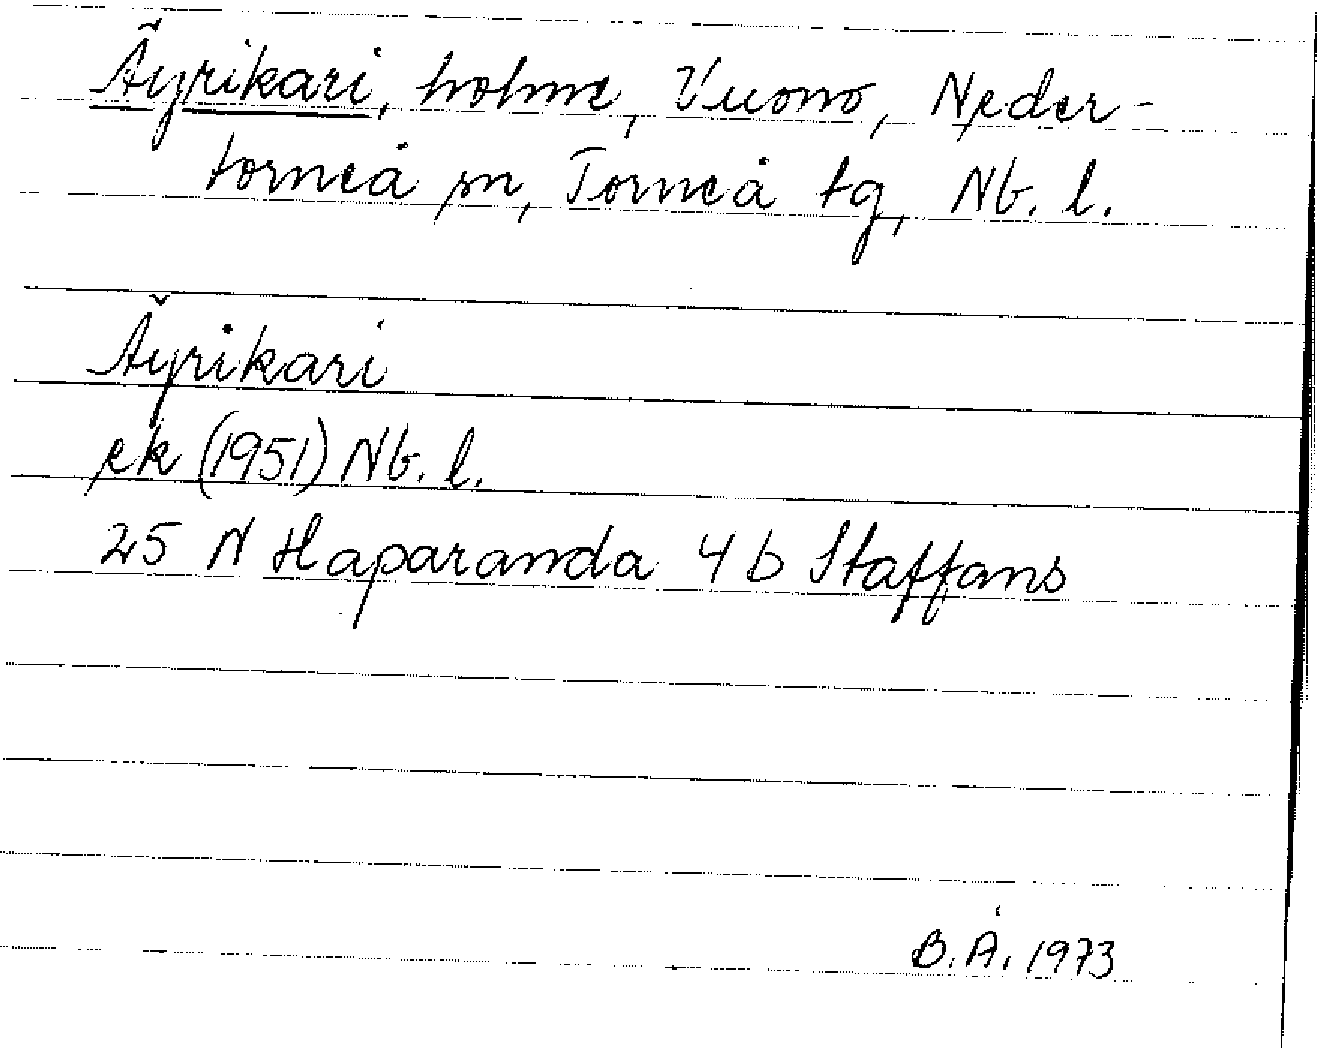 Äyrikari, holme, Vuono, Neder-
torneå sn, Torneå tg, Nb. l.
Äyrikari
ek (1951) Nb. l.
25 N Haparanda 4 b Staffans
B. Å. 1973